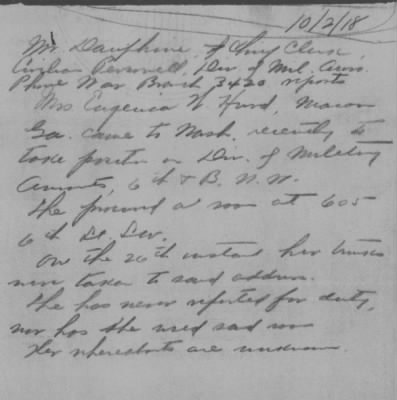 10/2/18
Mr. Dauphine, Army Clerk,
Civilian Personell, Div. of Mil. Aero.
Phone War Branch 3420 reports
Mrs Eugenia N. Hurd, Macon
Ga. came to Wash. recently to
take position in Div. of Military
6th & B. N.W.
She procured a room at 605
6th St. S.W.
On the 26th instant her trunks
were taken to said address.
She has never reported for duty,
nor has she used said room
Her whereabouts are unknown.